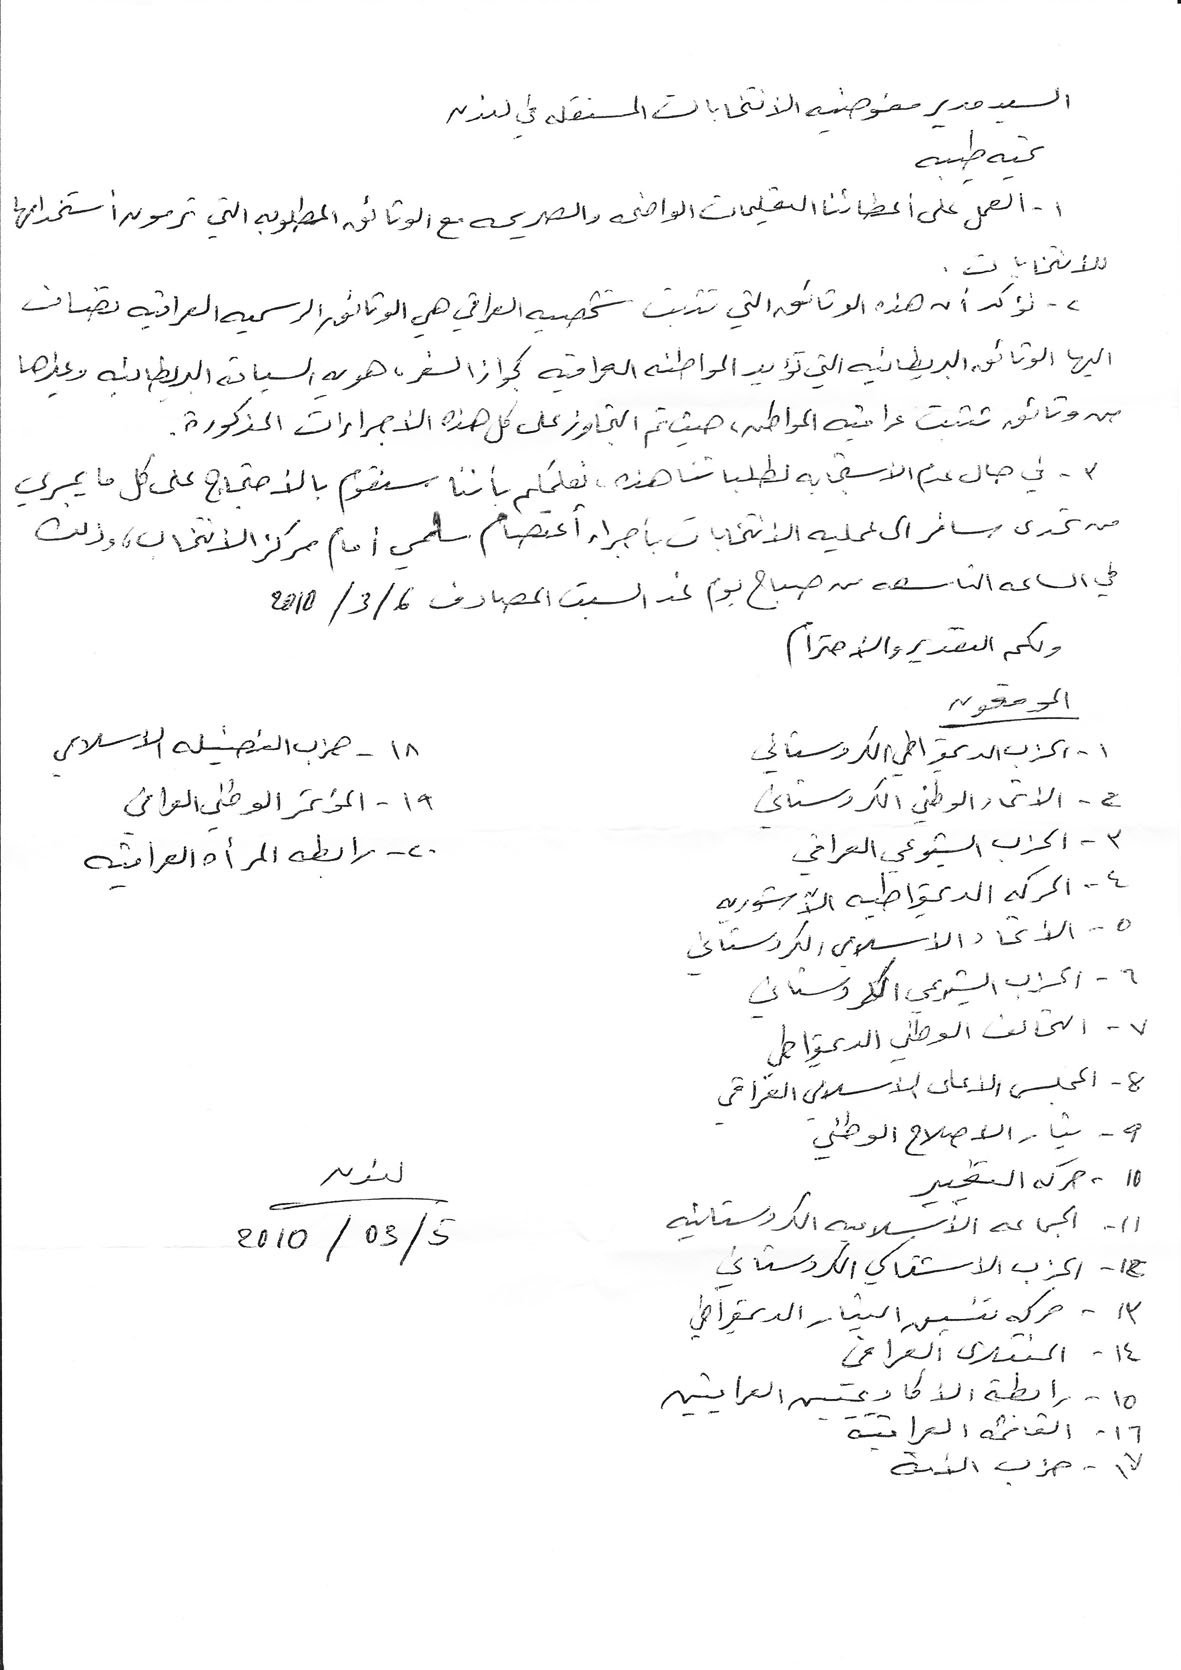 السيد مدير مفوضيه الانتخابات المستقله في لندن
تحيه طيبه
١- العمل على أعطائنا التعليمات الواضحه والصريحه مع الوثائق المطلوبه التي ترمون أستخدامها
للانتخابات .
٢- نؤكد أن هذه الوثائق التي تثبت شخصيه العراقي هي الوثائق الرسميه العراقيه تضاف
اليها الوثائق البريطانيه التي تؤيد المواطنه العراقيه كجواز السفر، هويه السياقه البريطانيه وغيرها
من وثائق تثبت عراقيه المواطن، حيث تم التجاوز على كل هذه الاجراءات المذكورة.
٣- في حال عدم الاستجابه لطلباتنا هذه، نعلمكم بأننا سنقوم بالاحتجاج على كل ما يجري
من تحدى سافر الى عمليه الانتخابات بأجراء أعتصام سلمي أمام مركز الانتخاب، وذلك
في الساعه التاسعه من صباح يوم غد السبت المصادف 6/3/2010
ولكم التقدير والاحترام
الموقعون
١- الحزب الديمقراطي الكردستاني
٢- الاتحاد الوطني الكردستاني
٣- الحزب الشيوعي العراقي
٤- الحركه الديمقراطيه الآشوريه
٥- الاتحاد الاسلامي الكردستاني
٦- الحزب الشيوعي الكردستاني
٧- التحالف الوطني الديمقراطي
٨- المجلس الاعلى الاسلامي العراقي
٩- تيار الاصلاح الوطني
١٠- حركه التغيير
١١- الجماعه الأسلاميه الكردستانيه
١٢- الحزب الاشتراكي الكردستاني
١٣- حركه تنسيق التيار الديمقراطي
١٤- المنتدى العراقي
١٥- رابطة الاكاديميين العراقيين
١٦- القائمه العراقية
١٧- حزب الأمة
١٨- حزب الفضيله الاسلامي
١٩- المؤتمر الوطني العراقي
٢٠- رابطه المرأه العراقيه
لندن
5/03/2010